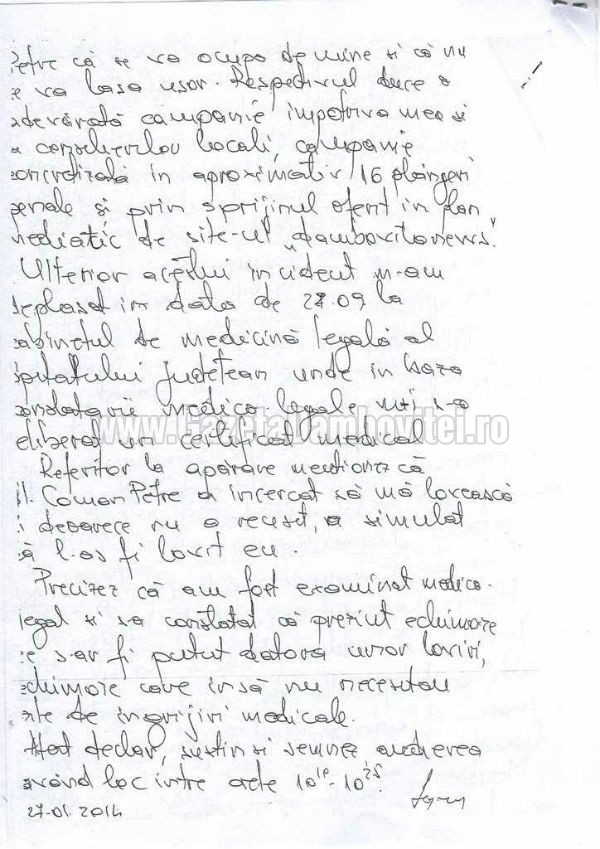 Petre că se va ocupa de mine și că nu
se va lasa usor. Respectivul duce o
adevărată campanie împotriva mea si
a consilierilor locali, campanie
concretizată in aproximativ 16 plângeri
penale si prin sprijinul oferit in plan
mediatic de site-ul „dambovitanews".
Ulterior acestui incident m-am
deplasat in data de 27.09 la
cabinetul de medicină legală al
spitalului județean unde in baza
constatarii medico legale mi s-a
eliberat un certificat medical
www.GazetaDambovitei.ro
Referitor la aparare mentionez că
dl. Coman Petre a incercat să mă lovească
si deoarece nu a reusit, a simulat
că l-as fi lovit eu.
Precizez că am fost examinat medico-
legal si s-a constatat că prezint echimoze
ce s-ar fi putut datora unor loviri,
echimoze care insă nu necesitau
zile de ingrijiri medicale.
Atat declar, sustin si semnez audierea
având loc intre orele 10¹⁰-10²⁵.
27.01.2014